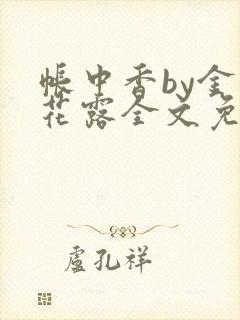 帐中香by金
花露全文免
卢孔祥